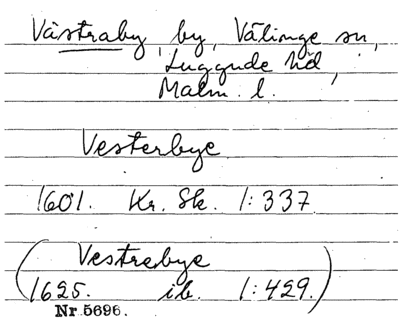 Västraby, by, Välinge sn,
Luggude hd,
Malm. l.
Vesterbye
1601. Kr. Sk. 1:337
(Vestrebye
1625. ib. 1:429.)
Nr 5696.